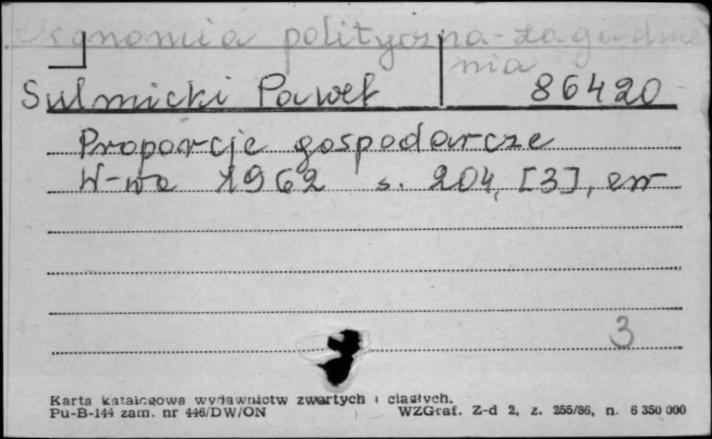 Ekonomia polityczna - zagadnie
nia
Sulmicki Paweł 86420
Proporcje gospodarcze
W-wa 1962 s. 204, [3], err
3
Karta katalogowa wydawnictw zwartych i ciągłych.
Pu-B-144 zam. nr 446/DW/ON WZGraf. Z-d 2, z. 255/86, n. 6 350 000